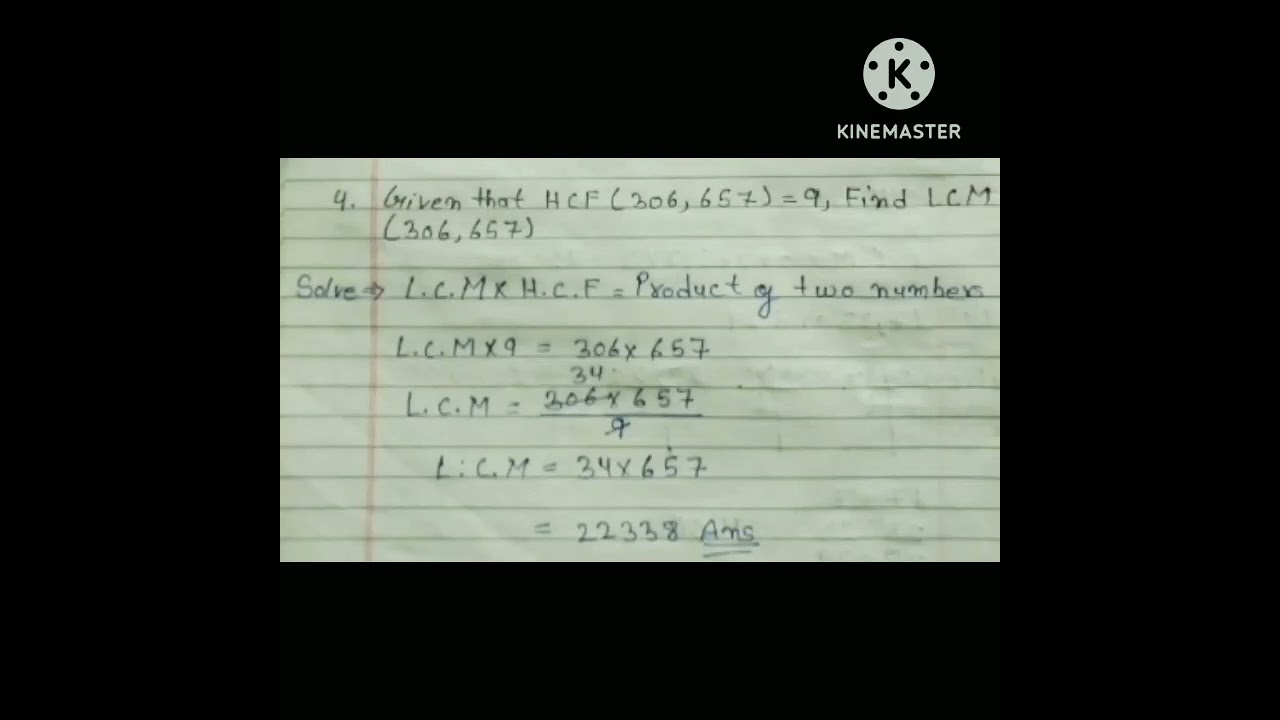 K
KINEMASTER
4. Given that HCF (306, 657) = 9, Find LCM
(306, 657)
Solve ⇒ L.C.M × H.C.F = Product of two numbers
L.C.M × 9 = 306 × 657
34
L.C.M = 306 × 657
9
L.C.M = 34 × 657
= 22338 Ans